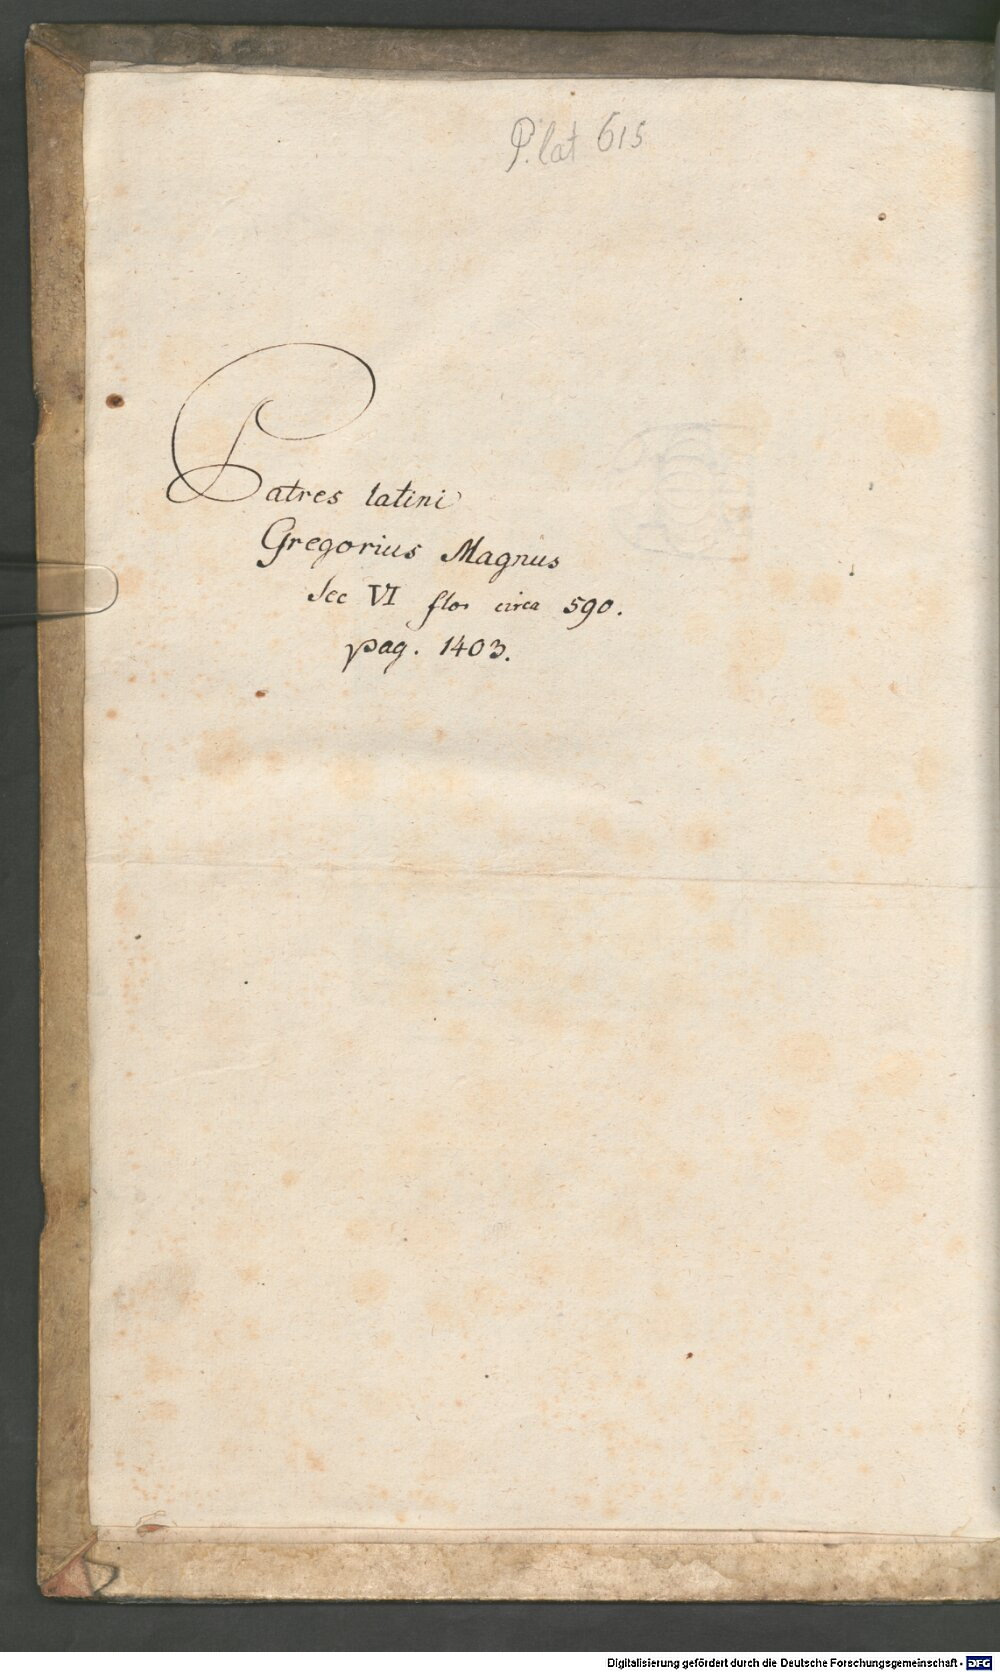 P. lat 615
Patres latini
Gregorius Magnus
Sec VI flor circa 590.
pag. 1403.
Digitalisierung gefördert durch die Deutsche Forschungsgemeinschaft - DFG